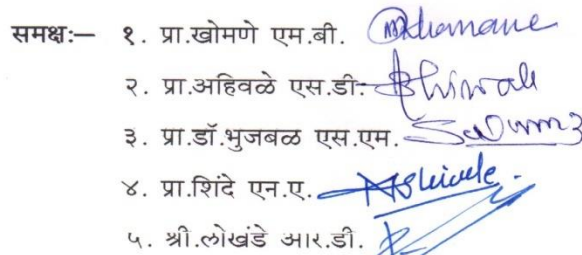 समक्षः— १. प्रा.खोमणे एम.बी.
२. प्रा.अहिवळे एस.डी.
३. प्रा.डॉ.भुजबळ एस.एम.
४. प्रा.शिंदे एन.ए.
५. श्री.लोखंडे आर.डी.